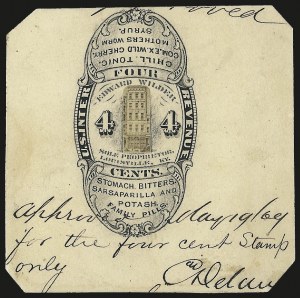 CHILL TONIC.
COM.EX.WILD CHERRY.
MOTHERS WORM
SYRUP.
U.S. INTER
REVENUE
FOUR
EDWARD WILDER
4 4
SOLE PROPRIETOR,
LOUISVILLE, KY.
CENTS.
STOMACH BITTERS,
SARSAPARILLA AND
POTASH.
FAMILY PILLS.
May 19/69
for the four cent Stamp
only